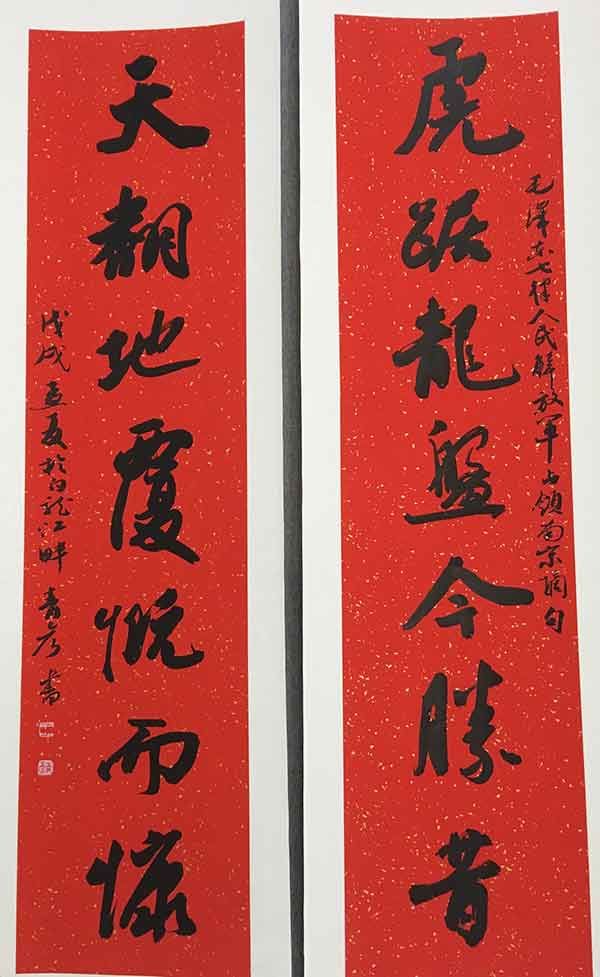 毛澤东七律人民解放軍占領南京摘句
虎踞龍盤今勝昔
天翻地覆慨而慷
戊戌孟夏於白龍江畔青書